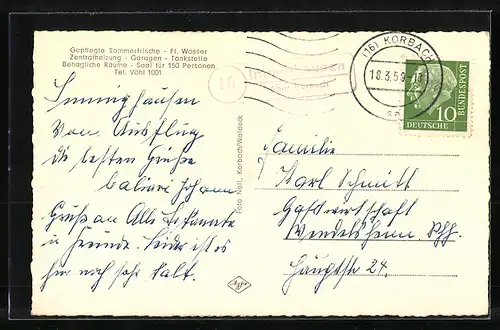 Gepflegte Sommerfrische - Fl. Wasser
Zentralheizung - Garagen - Tankstelle
Behagliche Räume - Saal für 150 Personen
Tel. Vöhl 1001
(16) KORBACH
18.3.59
16
DEUTSCHE BUNDESPOST
10
Immighausen
Vom Ausflug
die besten Grüße
Gruß an Alle Bekannte
u Freunde. Leider ist es
hier noch sehr kalt.
Foto Noll, Korbach/Waldeck
Familie
Karl Schmitt
Gastwirtschaft
Wendelsheim
Hauptstr 24.
Agfa